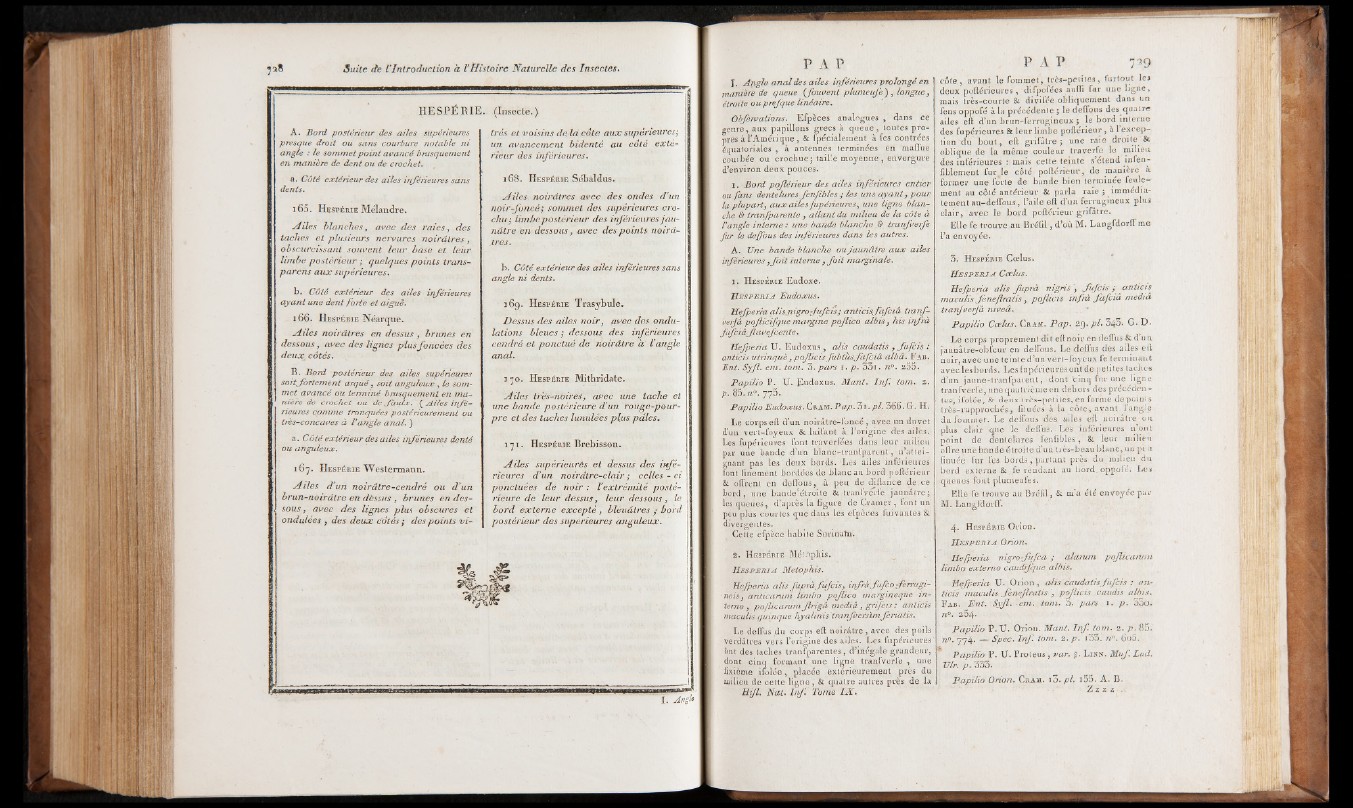 728 Suite de l'Introduction à l'Histoire Naturelle des Insectes.
HESPÉRIE. (Insecte.)
A. Bord postérieur des ailes supérieures
presque droit ou sans courbure notable ni
angle : le sommet point avancé brusquement
en manière de dent ou de crochet.
a. Côté extérieur des ailes inférieures sans
dents.
165. Hespérie Mélandre.
Ailes blanches, avec des raies, des
taches et plusieurs nervures noirâtres,
obscurcissant souvent leur base et leur
limbe postérieur ; quelques points trans-
parens aux supérieures.
b. Côté extérieur des ailes inférieures
ayant une dent forte et aiguë.
166. Hespérie Néarque.
Ailes noirâtres en dessus, brunes en
dessous, avec des lignes plus foncées des
deux côtés.
B. Bord postérieur des ailes supérieures
soit fortement arqué, soit anguleux, le som-
met avancé ou terminé brusquement en ma-
nière de crochet ou de faulx. (Ailes infé-
rieures comme tronquées postérieurement ou
très-concaves à l'angle anal.)
a. Côté extérieur des ailes inférieures denté
ou anguleux.
167. Hespérie Westermann.
Ailes d'un noirâtre-cendré ou d'un
brun-noirâtre en dessus, brunes en des-
sous, avec des lignes plus obscures et
ondulées, des deux côtés ; des points vi-
trés et voisins de la côte aux supérieures;
un avancement bidenté au côté exté-
rieur des inférieures.
168. Hespérie Sébaldus.
Ailes noirâtres avec des ondes d'un
noir-foncé; sommet des supérieures cro-
chu; limbe postérieur des inférieures jau-
nâtre en dessous, avec des points noirâ-
tres.
b. Côté extérieur des ailes inférieures sans
angle ni dents.
169. Hespérie Trasybule.
Dessus des ailes noir, avec des ondu-
lations bleues ; dessous des inférieures
cendré et ponctué de noirâtre à l'angle
anal.
170. Hespérie Mithridate.
Ailes très-noires, avec une tache et
une bande postérieure d'un rouge-pour-
pre et des taches lunulées plus pâles.
171. Hespérie Brebisson.
Ailes supérieures et dessus des infé-
rieures d'un noirâtre-clair ; celles-ci
ponctuées de noir : l'extrémité posté-
rieure de leur dessus, leur dessous, le
bord externe excepté, bleuâtres ; bord
postérieur des supérieures anguleux.
I. Angle
PAP
I. Angle anal des ailes inférieures prolongé en
manière de queue (souvent plumeuse), longue,
étroite ou presque linéaire.
Observations. Espèces analogues, dans ce
genre, aux papillons grecs à queue, toutes pro-
pres à l'Amérique, & spécialement à ses contrées
équatoriales, à antennes terminées en massue
courbée ou crochue ; taille moyenne, envergure
d'environ deux pouces.
1. Bord postérieur des ailes inférieures entier
ou sans dentelures sensibles ; les uns ayant, pour
la plupart, aux ailes supérieures, une ligne blan-
che & transparente, allant du milieu de la côte à
l'angle interne : une bande blanche & transverse
sur le dessous des inférieures dans les autres.
A. Une bande blanche ou jaunâtre aux ailes
inférieures, soit interne, soit marginale.
1. Hespérie Eudoxe.
Hesperia Eudoxus.
Hesperia alis nigro-fuscis ; anticis fasciâ trans-
versâ, posticisque margine postico albis, his infrà
fasciâ flavescente.
Hesperia U. Eudoxus, alis caudatis, fuscis :
anticis utrinquè, posticis subtùs fasciâ albâ. Fab.
Ent. Syst. em. tom. 3. pars 1. p. 331. n°. 253.
Papilio P. U. Eudoxus. Mant. Ins. tom. 2.
p. 85. n°. 773.
Papilio Eudoxus. Cram. Pap. 31. pl. 366. G. H.
Le corps est d'un noirâtre-foncé, avec un duvet
d'un vert-soyeux & luisant à l'origine des ailes.
Les supérieures sont traversées dans leur milieu
par une bande d'un blanc-transparent, n'attei-
gnant pas les deux bords. Les ailes inférieures
sont finement bordées de blanc au bord postérieur
& offrent en dessous, à peu de distance de ce
bord, une bande étroite & transverse jaunâtre ;
les queues, d'après la figure de Cramer, sont un
peu plus courtes que dans les espèces suivantes &
divergentes.
Cette espèce habite Surinam.
2. Hespérie Métophis.
Hesperia Metophis.
Hesperia alis suprà fuscis, infrà fusco-ferrugi-
neis ; anticarum limbo postico margineque in-
terno, posticarum strigâ mediâ, griseis : anticis
maculis quinque hyalinis transversim seriatis.
Le dessus du corps est noirâtre, avec des poils
verdâtres vers l'origine des ailes. Les supérieures
ont des taches transparentes, d'inégale grandeur,
dont cinq formant une ligne transverse, une
sixième isolée, placée extérieurement près du
milieu de cette ligne, & quatre autres près de la
Hist. Nat. Ins. Tome IX.
PAP 729
côte, avant le sommet, très-petites, surtout les
deux postérieures, disposées aussi sur une ligne,
mais très-courte & divisée obliquement dans un
sens opposé à la précédente ; le dessous des quatre
ailes est d'un brun-ferrugineux ; le bord interne
des supérieures & leur limbe postérieur, à l'excep-
tion du bout, est grisâtre ; une raie droite &
oblique de la même couleur traverse le milieu
des inférieures : mais cette teinte s'étend insen-
siblement sur le côté postérieur, de manière à
former une sorte de bande bien terminée seule-
ment au côté antérieur & par la raie ; immédia-
tement au-dessous, l'aile est d'un ferrugineux plus
clair, avec le bord postérieur grisâtre.
Elle se trouve au Brésil, d'où M. Langsdorff me
l'a envoyée.
3. Hespérie Cœlus.
Hesperia Cœlus.
Hesperia alis suprà nigris, fuscis ; anticis
maculis fenestratis, posticis infrà fasciâ mediâ
transversâ niveâ.
Papilio Cœlus. Cram. Pap. 29. pl. 343. C. D.
Le corps proprement dit est noir en dessus & d'un
jaunâtre-obscur en dessous. Le dessus des ailes est
noir, avec une teinte d'un vert-soyeux se terminant
avec les bords. Les supérieures ont de petites taches
d'un jaune-transparent, dont cinq sur une ligne
transverse, une quatrième en dehors des précéden-
tes, isolée, & deux très-petites, en forme de points
très-rapprochés, situées à la côte, avant l'angle
du sommet. Le dessous des ailes est noirâtre ou
plus clair que le dessus. Les inférieures n'ont
point de dentelures sensibles, & leur milieu
offre une bande étroite d'un très-beau blanc, un peu
sinuée sur ses bords, partant près du milieu du
bord externe & se rendant au bord opposé. Les
queues sont plumeuses.
Elle se trouve au Brésil, & m'a été envoyée par
M. Langsdorff.
4. Hespérie Orion.
Hesperia Orion.
Hesperia nigro-fusca ; alarum posticarum
limbo externo caudisque albis.
Hesperia U. Orion, alis caudatis fuscis : an-
ticis maculis fenestratis, posticis caudis albis.
Fab. Ent. Syst. em. tom. 3. pars 1. p. 330.
n°. 254.
Papilio P. U. Orion. Mant. Ins. tom. 2. p. 85.
n°. 774. — Spec. Ins. tom. 2. p. 133. n°. 605.
Papilio P. U. Proteus, var. β. Linn. Mus. Lud.
Ulr. p. 333.
Papilio Orion. Cram. 13. pl. 155. A. B.
Zzzz